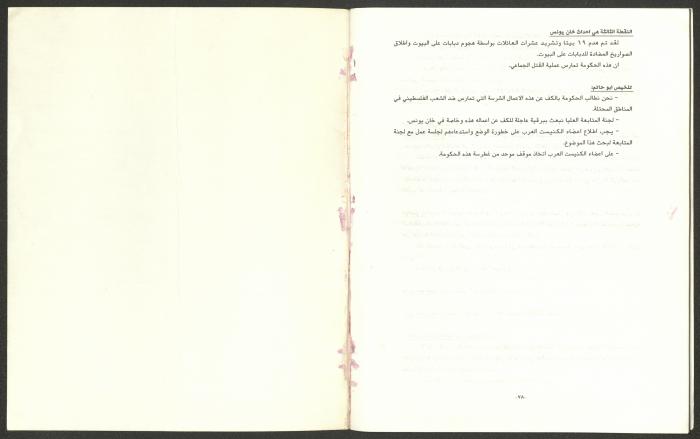 النقطة الثالثة هي احداث خان يونس
لقد تم هدم ١٩ بيتا وتشريد عشرات العائلات بواسطة هجوم دبابات على البيوت واطلاق
الصواريخ المضادة للدبابات على البيوت.
ان هذه الحكومة تمارس عملية القتل الجماعي.
تلخيص ابو حاتم:
- نحن نطالب الحكومة بالكف عن هذه الاعمال الشرسة التي تمارس ضد الشعب الفلسطيني في
المناطق المحتلة.
- لجنة المتابعة العليا تبعث ببرقية عاجلة للكف عن اعماله هذه وخاصة في خان يونس.
- يجب اطلاع اعضاء الكنيست العرب على خطورة الوضع واستدعاءهم لجلسة عمل مع لجنة
المتابعة لبحث هذا الموضوع.
- على اعضاء الكنيست العرب اتخاذ موقف موحد من غطرسة هذه الحكومة.
-٧٨-